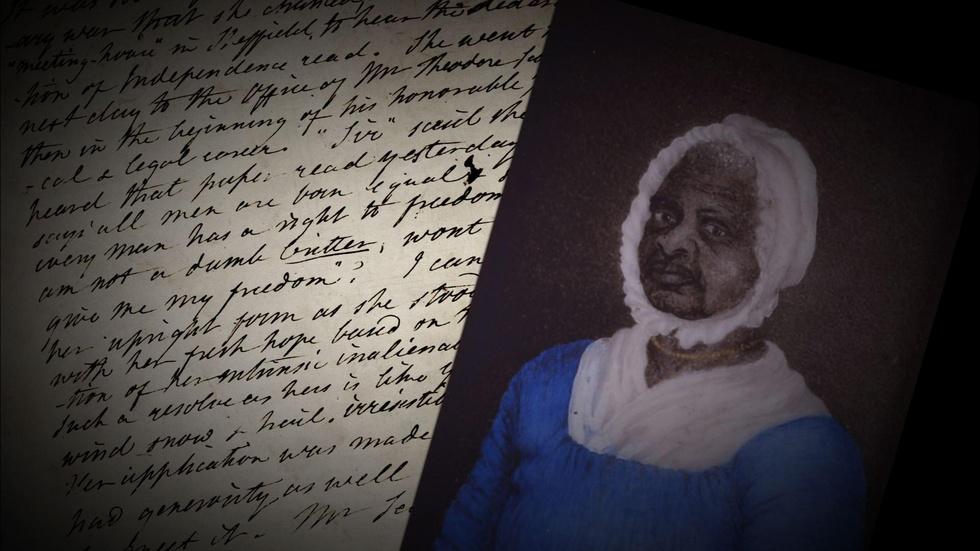 It was
-ary war that she chanced
"meeting-house" in Sheffield, to hear the decla
-tion of Independence read. She went
next day to the office of Mr Theodore
then in the beginning of his honorable
-cal & legal career. "Sir" said she
heard that paper read yesterday
says 'all men are born equal &
every man has a right to freedom
am not a dumb critter; wont
give me my freedom"? I can
her upright form as she stood
with her fresh hope based on
-tion of her intrinsic inaliena
Such a resolve as hers is like
wind snow & hail. irresisti
Her application was made
had generosity as well
it. Mr